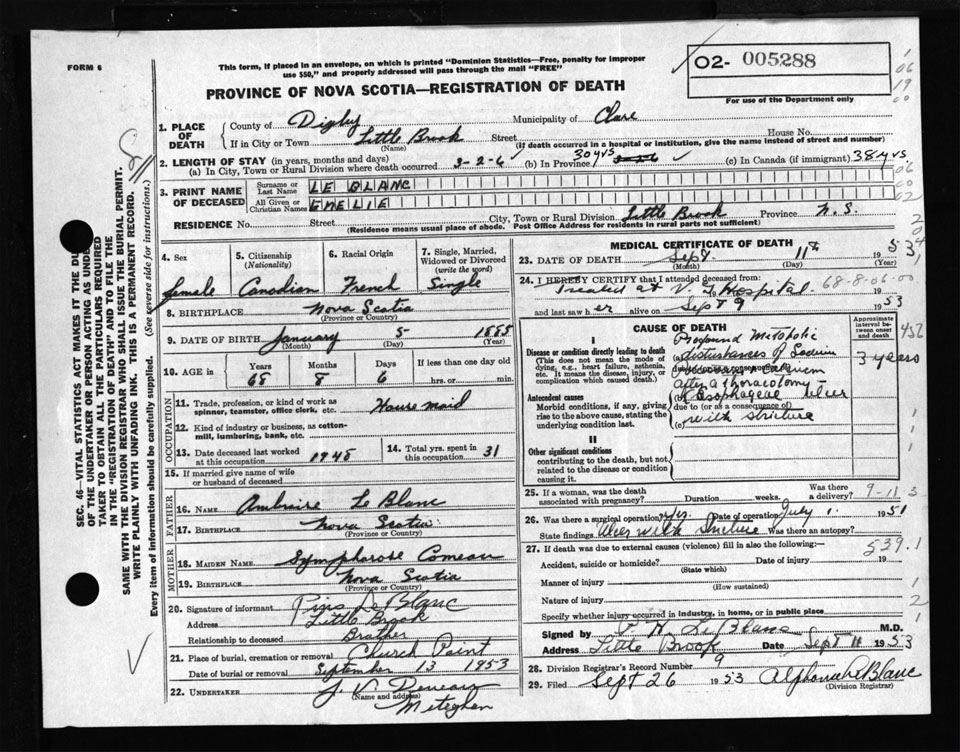 FORM 6
This form, if placed in an envelope, on which is printed "Dominion Statistics—Free, penalty for improper
use $50," and properly addressed will pass through the mail "FREE"
PROVINCE OF NOVA SCOTIA—REGISTRATION OF DEATH
O2- 005288
For use of the Department only
SEC. 46—VITAL STATISTICS ACT MAKES IT THE DU
OF THE UNDERTAKER OR PERSON ACTING AS UNDE
TAKER TO OBTAIN ALL THE PARTICULARS REQUIRED
IN THE "REGISTRATION OF DEATH" AND TO FILE THE
SAME WITH THE DIVISION REGISTRAR WHO SHALL ISSUE THE BURIAL PERMIT.
WRITE PLAINLY WITH UNFADING INK. THIS IS A PERMANENT RECORD.
Every item of information should be carefully supplied. (See reverse side for instructions.)
1. PLACE OF DEATH County of Digby Municipality of Clare
If in City or Town Little Brook Street House No.
(Name) (If death occurred in a hospital or institution, give the name instead of street and number)
2. LENGTH OF STAY (in years, months and days)
(a) In City, Town or Rural Division where death occurred 3-2-6 (b) In Province 30 yrs (c) In Canada (if immigrant) 38 yrs
3. PRINT NAME OF DECEASED Surname or Last Name LE BLANC
All Given or Christian Names EMELIE
RESIDENCE No. Street City, Town or Rural Division Little Brook Province N.S.
(Residence means usual place of abode. Post Office Address for residents in rural parts not sufficient)
4. Sex 5. Citizenship (Nationality) 6. Racial Origin 7. Single, Married, Widowed or Divorced (write the word)
female Canadian French Single
8. BIRTHPLACE Nova Scotia
(Province or Country)
9. DATE OF BIRTH January 5 1885
(Month) (Day) (Year)
10. AGE in Years Months Days If less than one day
68 8 6 hrs. or min.
OCCUPATION
11. Trade, profession, or kind of work as spinner, teamster, office clerk, etc. House maid
12. Kind of industry or business, as cotton-mill, lumbering, bank, etc.
13. Date deceased last worked at this occupation 1948 14. Total yrs. spent in this occupation 31
15. If married give name of wife or husband of deceased
FATHER
16. NAME Ambroise Le Blanc
17. BIRTHPLACE Nova Scotia
(Province or Country)
MOTHER
18. MAIDEN NAME Symphorose Comeau
19. BIRTHPLACE Nova Scotia
(Province or Country)
20. Signature of informant Pius LeBlanc
Address Little Brook
Relationship to deceased Brother
21. Place of burial, cremation or removal Church Point
Date of burial or removal September 13 1953
22. UNDERTAKER
(Name and address)
Meteghan
MEDICAL CERTIFICATE OF DEATH
23. DATE OF DEATH Sept. 11th 1953
(Month) (Day) (Year)
24. I HEREBY CERTIFY that I attended deceased from:
Treated at V. G. Hospital 68-8-06-00
and last saw her alive on Sept 9 1953
CAUSE OF DEATH
Approximate interval between onset and death
I
Disease or condition directly leading to death
(This does not mean the mode of dying, e.g., heart failure, asthenia, etc. It means the disease, injury, or complication which caused death.)
Profound Metabolic
disturbances of Sodium
after a thoracotomy
3 years
456
Antecedent causes
Morbid conditions, if any, giving rise to the above cause, stating the underlying condition last.
Esophageal Ulcer
due to (or as a consequence of)
with stricture
II
Other significant conditions
contributing to the death, but not related to the disease or condition causing it.
25. If a woman, was the death associated with pregnancy? Duration weeks. Was there a delivery? 9-11 3
26. Was there a surgical operation? yes. Date of operation July 1. 1951
State findings Ulcer with Stricture Was there an autopsy?
27. If death was due to external causes (violence) fill in also the following:— 539.1
Accident, suicide or homicide? Date of injury 19
(State which)
Manner of injury
(How sustained)
Nature of injury
Specify whether injury occurred in industry, in home, or in public place
Signed by LeBlanc M.D.
Address Little Brook Date Sept 11 1953
28. Division Registrar's Record Number 9
29. Filed Sept 26 1953 Alphonse LeBlanc
(Division Registrar)